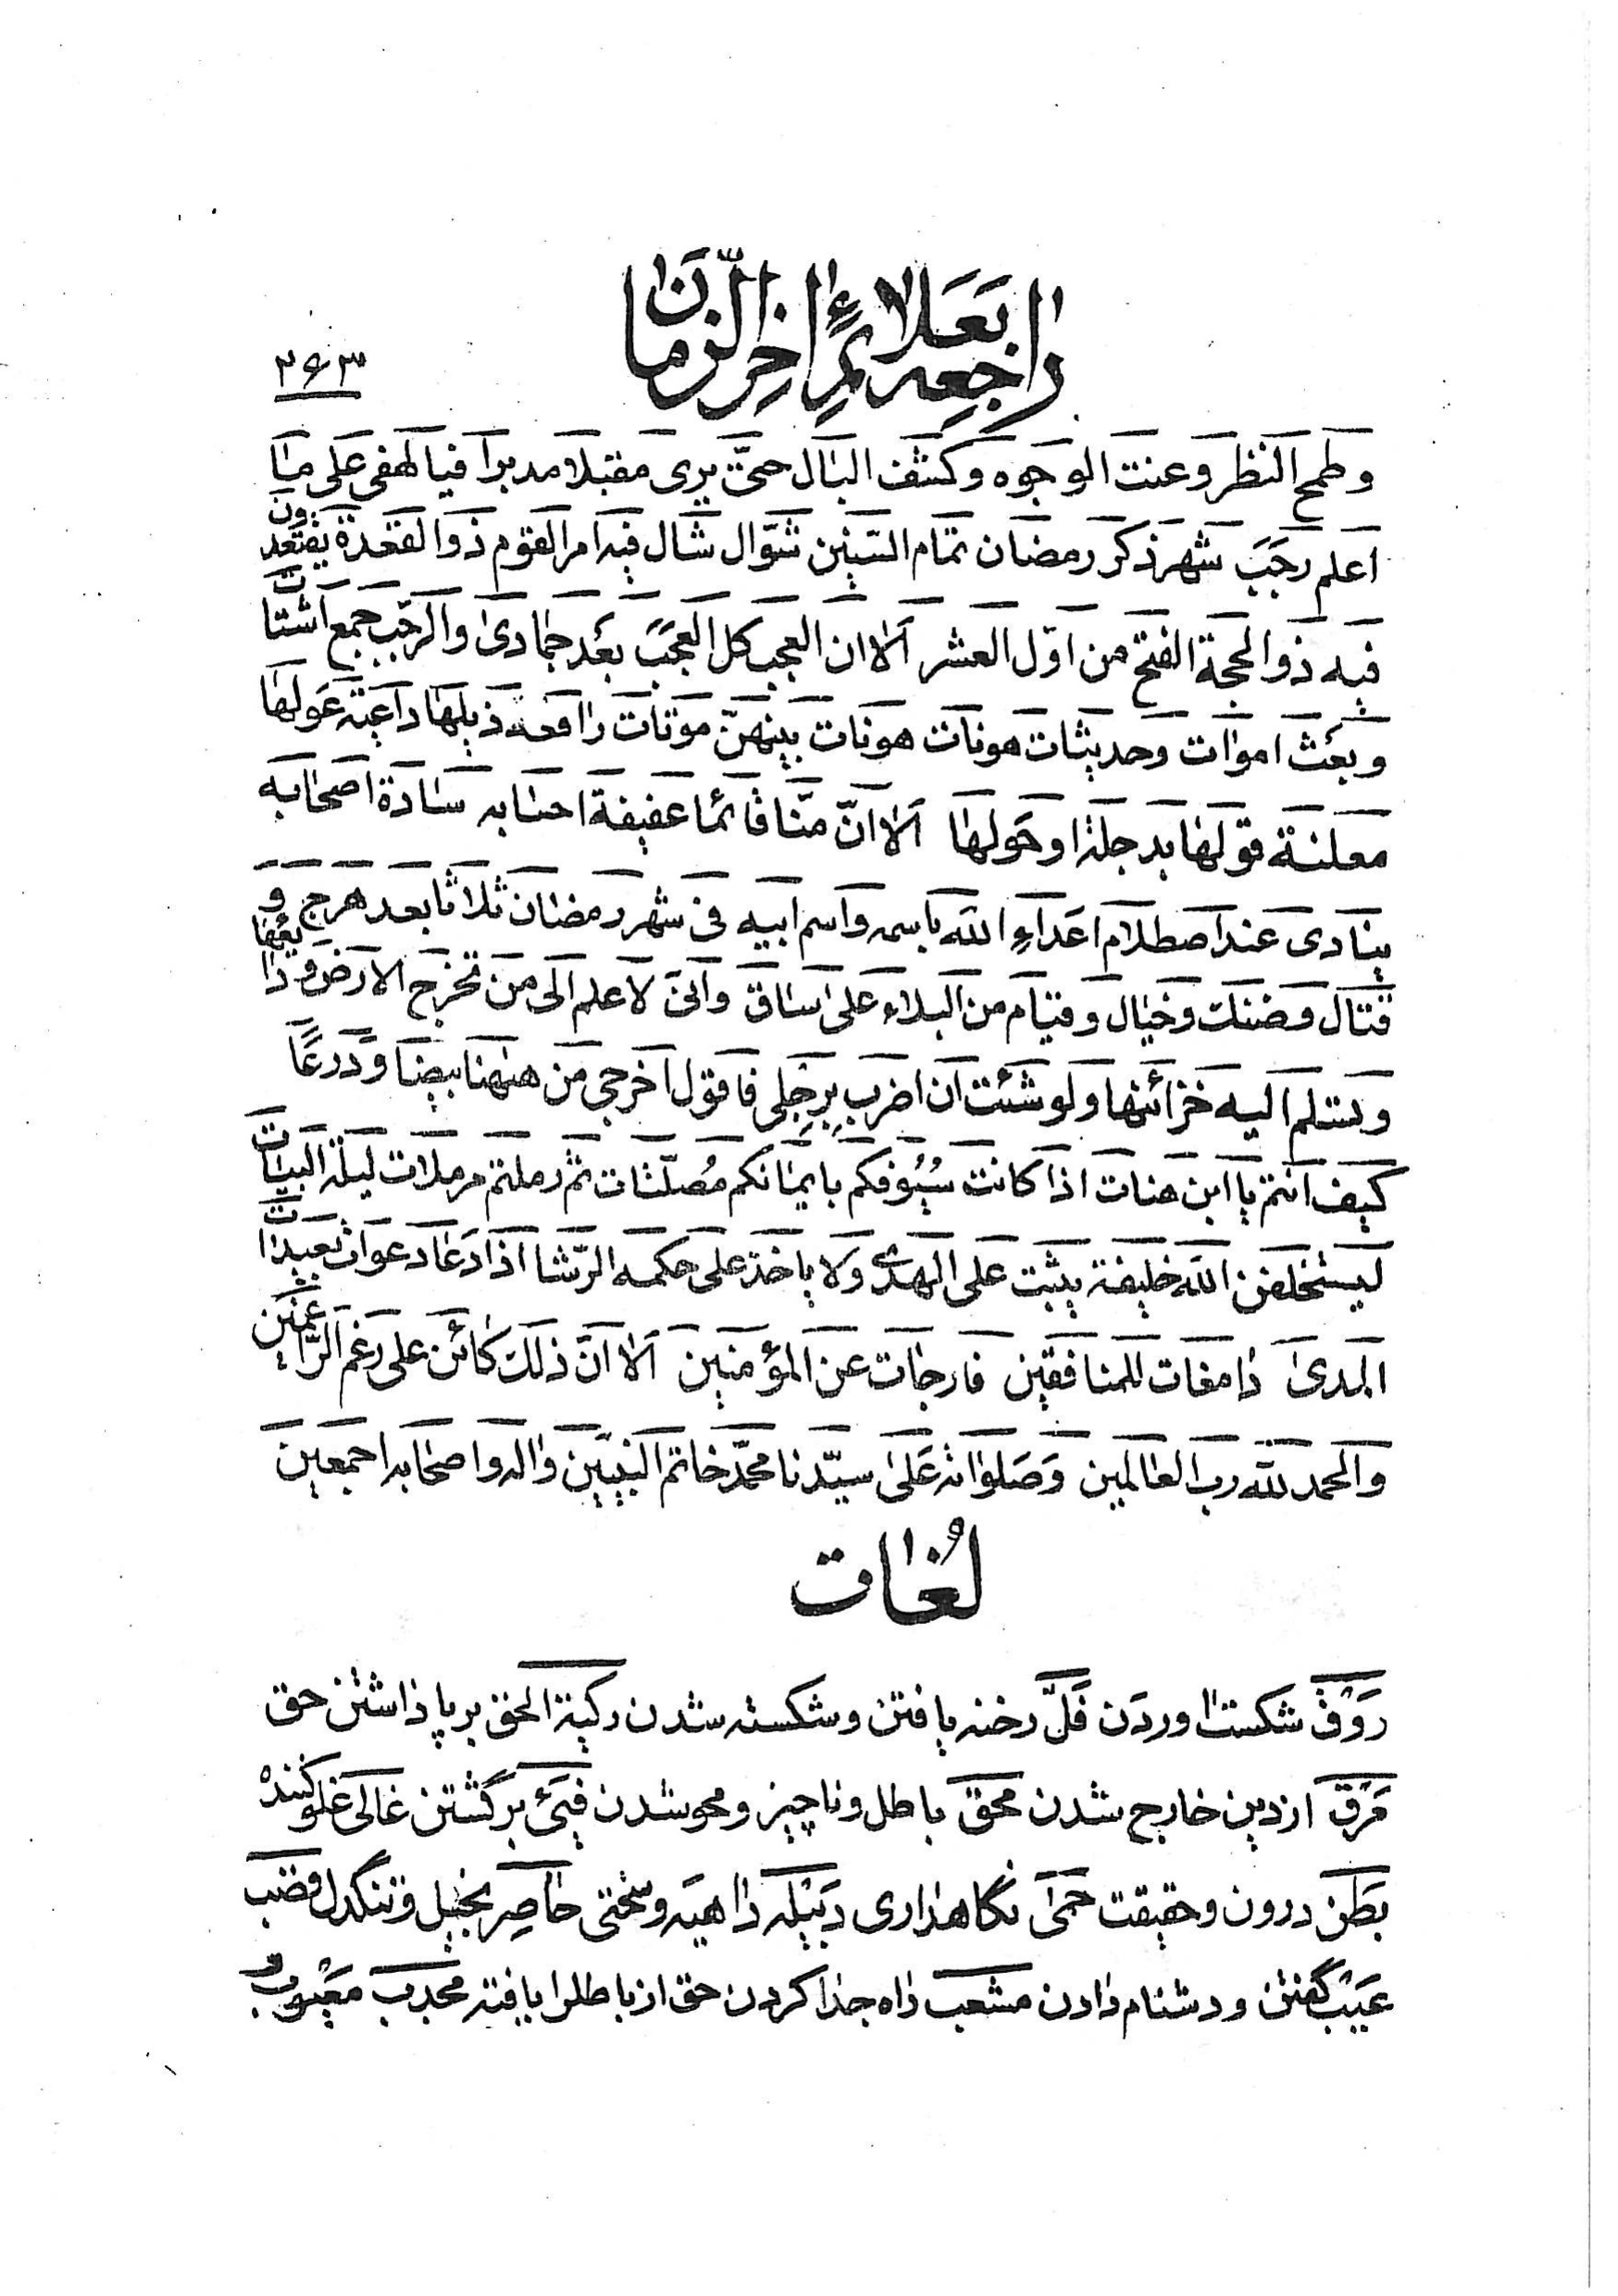 راجعه بعلائم اخر الزمان
۲۶۳
و طمح النظر و عنت الوجوه و كشف البال حتّى يرى مقبلا مدبرا فيا لهفى على ما
اعلم رجب شهر ذكر رمضان تمام السّنين شوّال شال فيه امر القوم ذو القعدة يقتعدون
فيه ذو الحجة الفتح من اوّل العشر الا ان العجب كل العجب بعد جمادى و الرجب جمع اشتات
و بعث اموات و حديثات هونات هونات بينهنّ موتات رافعة ذيلها داعية عولها
معلنة قولها بدجلة او حولها الا انّ منّا قائما عفيفة احسابه سادة اصحابه
ينادى عند اصطلام اعداء الله باسمه و اسم ابيه فى شهر رمضان ثلاثا بعد هرج و
قتال و ضنك و خبال و قيام من البلاء على ساق و انى لا علم الى من تخرج الارض ودايعها
و تسلم اليه خزائنها و لو شئت ان اضرب برجلى فاقول اخرجى من ههنا بيضا و درعًا
كيف انتم يا ابن هنات اذا كانت سُيُوفكم بايمانكم مُصلّتات ثم رملتم رملات ليلة البيات
ليستخلفن الله خليفة يثبت على الهدى و لا ياخذ على حكمه الرّشا اذا دعا دعوات بعيدات
المدى دامغات للمنافقين فارجات عن المؤمنين الا انّ ذلك كائن على رغم الرّاغمين
و الحمد لله رب العالمين و صلواته على سيّدنا محمّد خاتم النبيّين و اله و اصحابه اجمعين
لُغات
رَوْق شكست اوردن فَلّ رخنه يافتن و شكسته شدن ركبة الحق بر پا داشتن حق
مَرَق از دين خارج شدن محق باطل و ناچيز و محو شدن فيئ برگشتن غالى غلوكننده
بَطَن درون و حقيقت حمى نگاهدارى دَبَيْله داهيه و سختى حاصِر بخيل و تنگدل قضب
عَيْب گفتن و دشنام دادن مشعب راه جدا كردن حق از باطل را يافته مجدب معيوب و